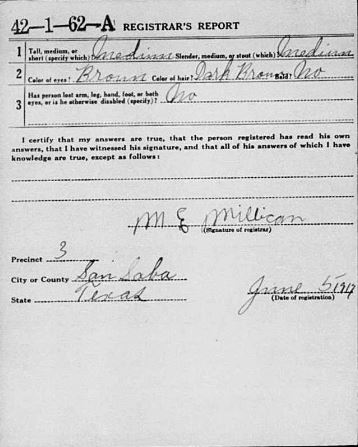 42-1-62-A REGISTRAR'S REPORT
1 Tall, medium, or short (specify which)? Medium Slender, medium, or stout (which)? Medium
2 Color of eyes? Brown Color of hair? Dark Brown Bald? No
3 Has person lost arm, leg, hand, foot, or both eyes, or is he otherwise disabled (specify)? No
I certify that my answers are true, that the person registered has read his own
answers, that I have witnessed his signature, and that all of his answers of which I have
knowledge are true, except as follows:
M E Millican
(Signature of registrar)
Precinct 3
City or County San Saba
State Texas
June 5, 1917
(Date of registration)